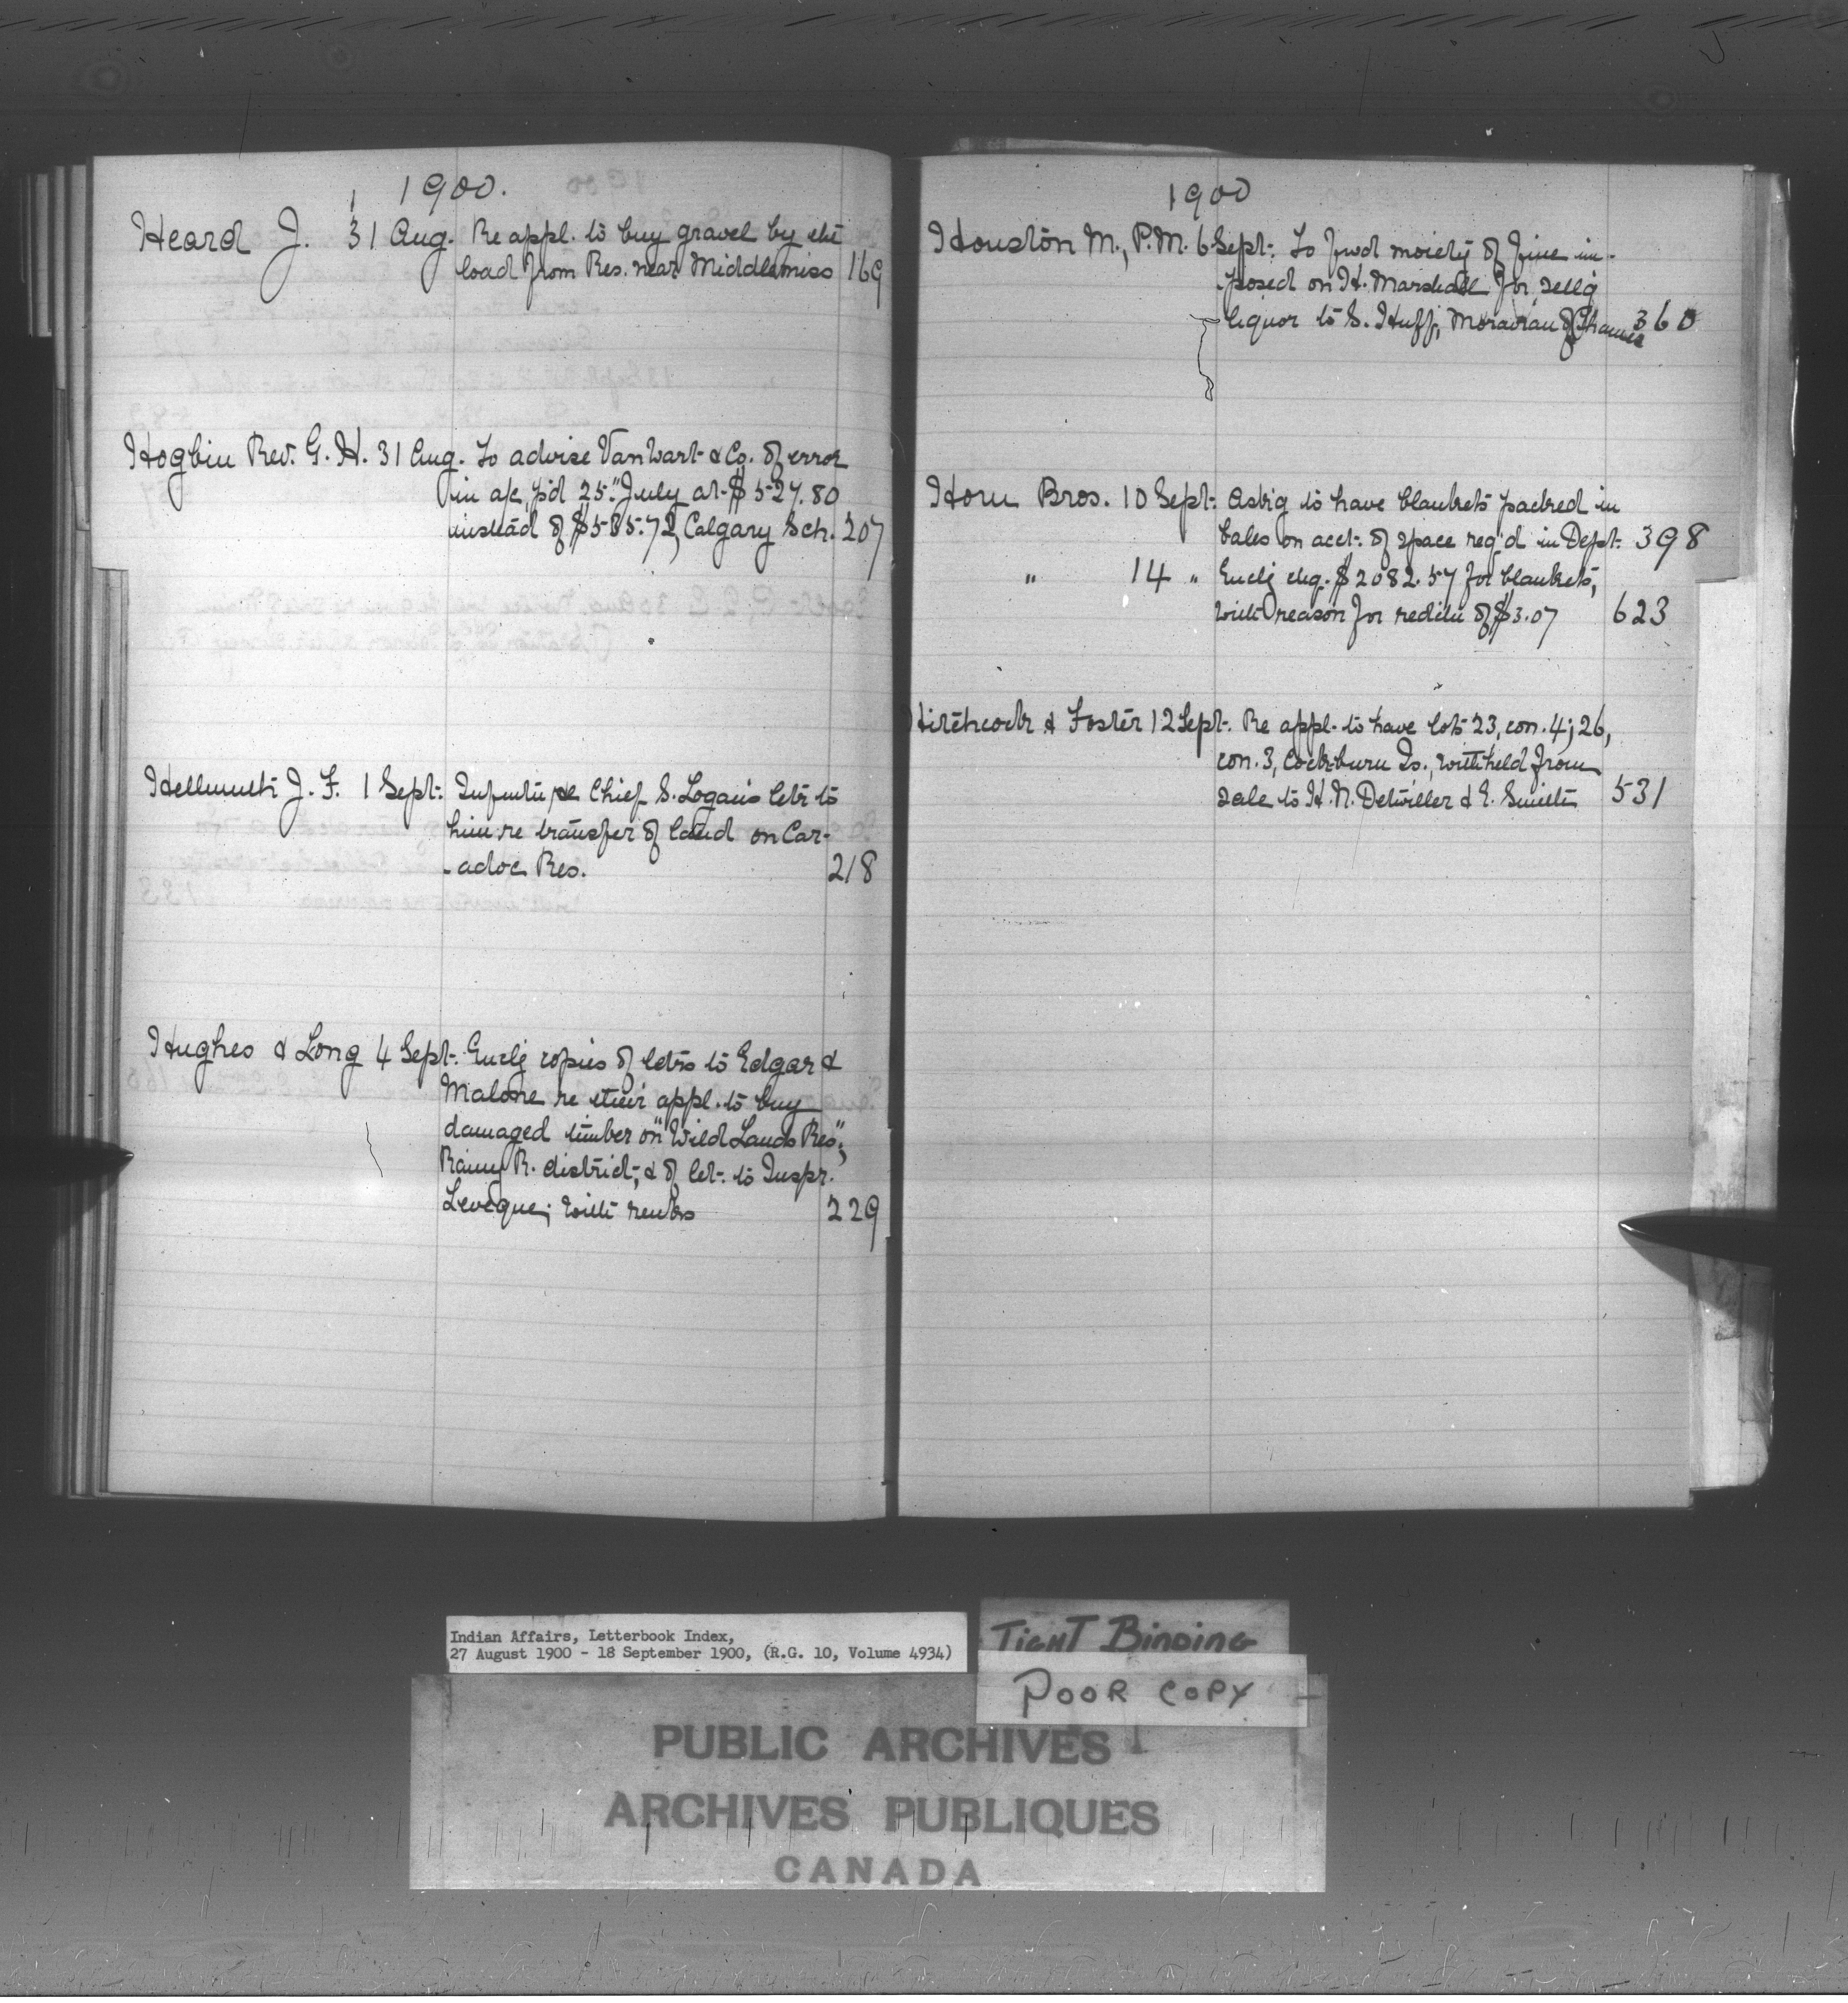 1900.
Heard J. 31 Aug. Re appl. to buy gravel by the
load from Res. near Middlemiss 169
Hogbin Rev. G. H. 31 Aug. To advise Van Wart & Co. of error
in a/c p'd 25" July at $527.80
instead of $535.72, Calgary Sch. 207
Hellmuth J. F. 1 Sept. Chief S. Logan's letr to
him re transfer of land on Car-
-adoc Res. 218
Hughes & Long 4 Sept. Enclg copies of letrs to Edgar &
Malone re their appl. to buy
damaged timber on "Wild Lands Res",
Rainy R. district, & of let. to Inspr.
Leveque; with remks 229
1900
Houston M., P.M. 6 Sept. To fwd moiety of fine im-
-posed on H. Marshall for sellg
liquor to S. Huff, Moravian of Thames 360
Horn Bros. 10 Sept. Askg to have blankets packed in
bales on acct. of space req'd in Dept. 398
" 14 " Enclg chq. $2082.57 for blankets,
with reason for redctn of $3.07 623
Hitchcock & Foster 12 Sept. Re appl. to have lots 23, con. 4; 26,
con. 3, Cockburn Is., withheld from
sale to H. N. Detwiller & E. Smith 531
Indian Affairs, Letterbook Index,
27 August 1900 - 18 September 1900, (R.G. 10, Volume 4934)
TIGHT BINDING
POOR COPY
PUBLIC ARCHIVES
ARCHIVES PUBLIQUES
CANADA